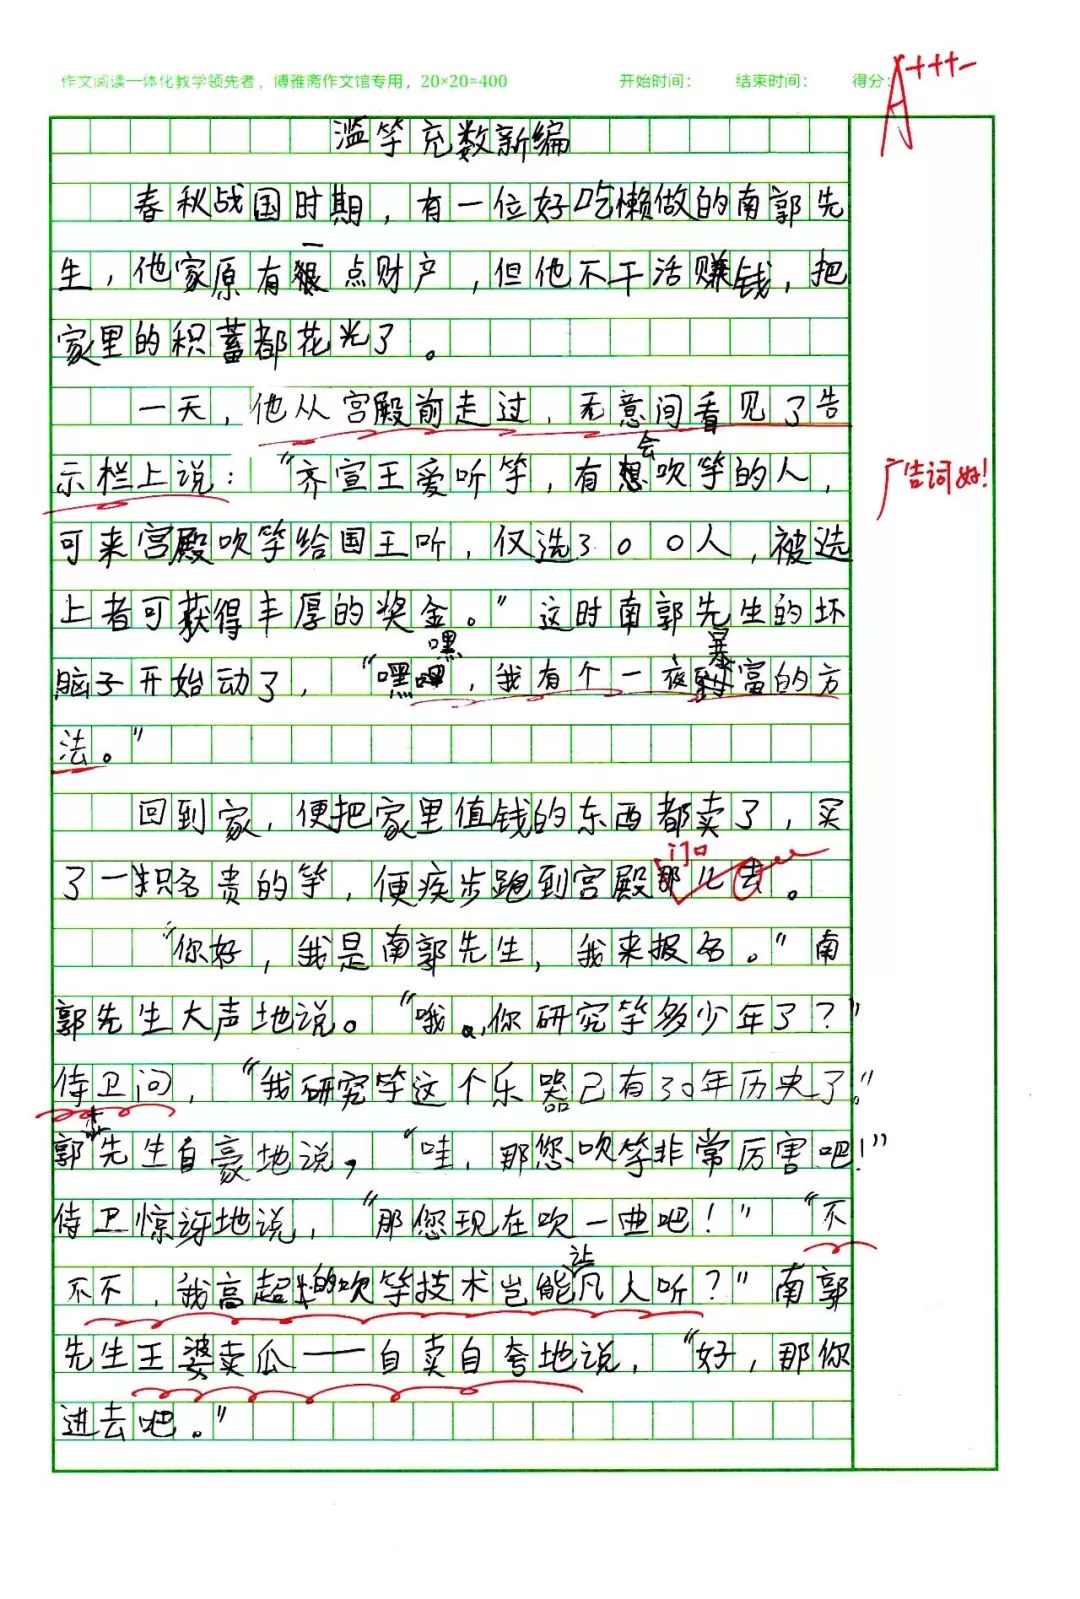 作文阅读一体化教学领先者，博雅斋作文馆专用，20×20=400 开始时间： 结束时间： 得分：
A+++-
滥竽充数新编
春秋战国时期，有一位好吃懒做的南郭先
生，他家原有一点财产，但他不干活赚钱，把
家里的积蓄都花光了。
一天，他从宫殿前走过，无意间看见了告
示栏上说：“齐宣王爱听竽，有会吹竽的人，
广告词好！
可来宫殿吹竽给国王听，仅选300人，被选
上者可获得丰厚的奖金。”这时南郭先生的坏
脑子开始动了，“嘿嘿，我有个一夜暴富的方
法。”
回到家，便把家里值钱的东西都卖了，买
门口
了一只名贵的竽，便疾步跑到宫殿那儿去。
“你好，我是南郭先生，我来报名。”南
郭先生大声地说。“哦，你研究竽多少年了？”
侍卫问，“我研究竽这个乐器已有30年历史了。”
南郭先生自豪地说，“哇，那您吹竽非常厉害吧！”
侍卫惊讶地说，“那您现在吹一曲吧！”“不
不不，我高超的吹竽技术岂能让凡人听？”南郭
先生王婆卖瓜——自卖自夸地说，“好，那你
进去吧。”